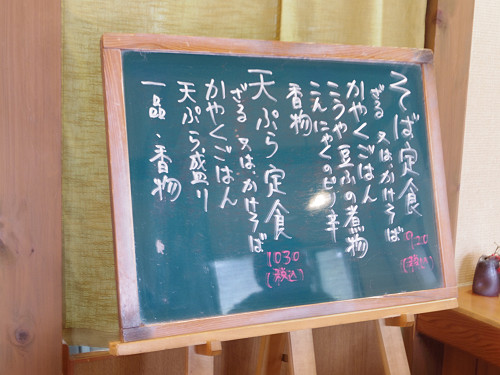 そば定食
920
(税込)
ざる 又は、かけそば
かやくごはん
こうや豆ふの煮物
こんにゃくのピリ辛
香物
天ぷら定食
1030
(税込)
ざる 又は、かけそば
かやくごはん
天ぷら盛り
一品・香物